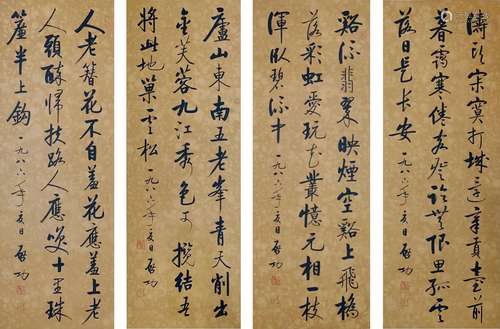 濤頭寂寞打城還章貢臺前
暮靄寒倦客登臨無限思孤雲
落日是長安 一九八六年夏日 啟功
谿流翡翠映煙空谿上飛橋
落彩虹愛玩花叢憶元相一枝
渾臥碧流中 一九八六年夏日 啟功
廬山東南五老峯青天削出
金芙蓉九江秀色可攬結吾
將此地巢雲松 一九八六年夏日 啟功
人老簪花不自羞花應羞上老
人頭醉歸扶路人應笑十里珠
簾半上鈎 一九八六年夏日 啟功